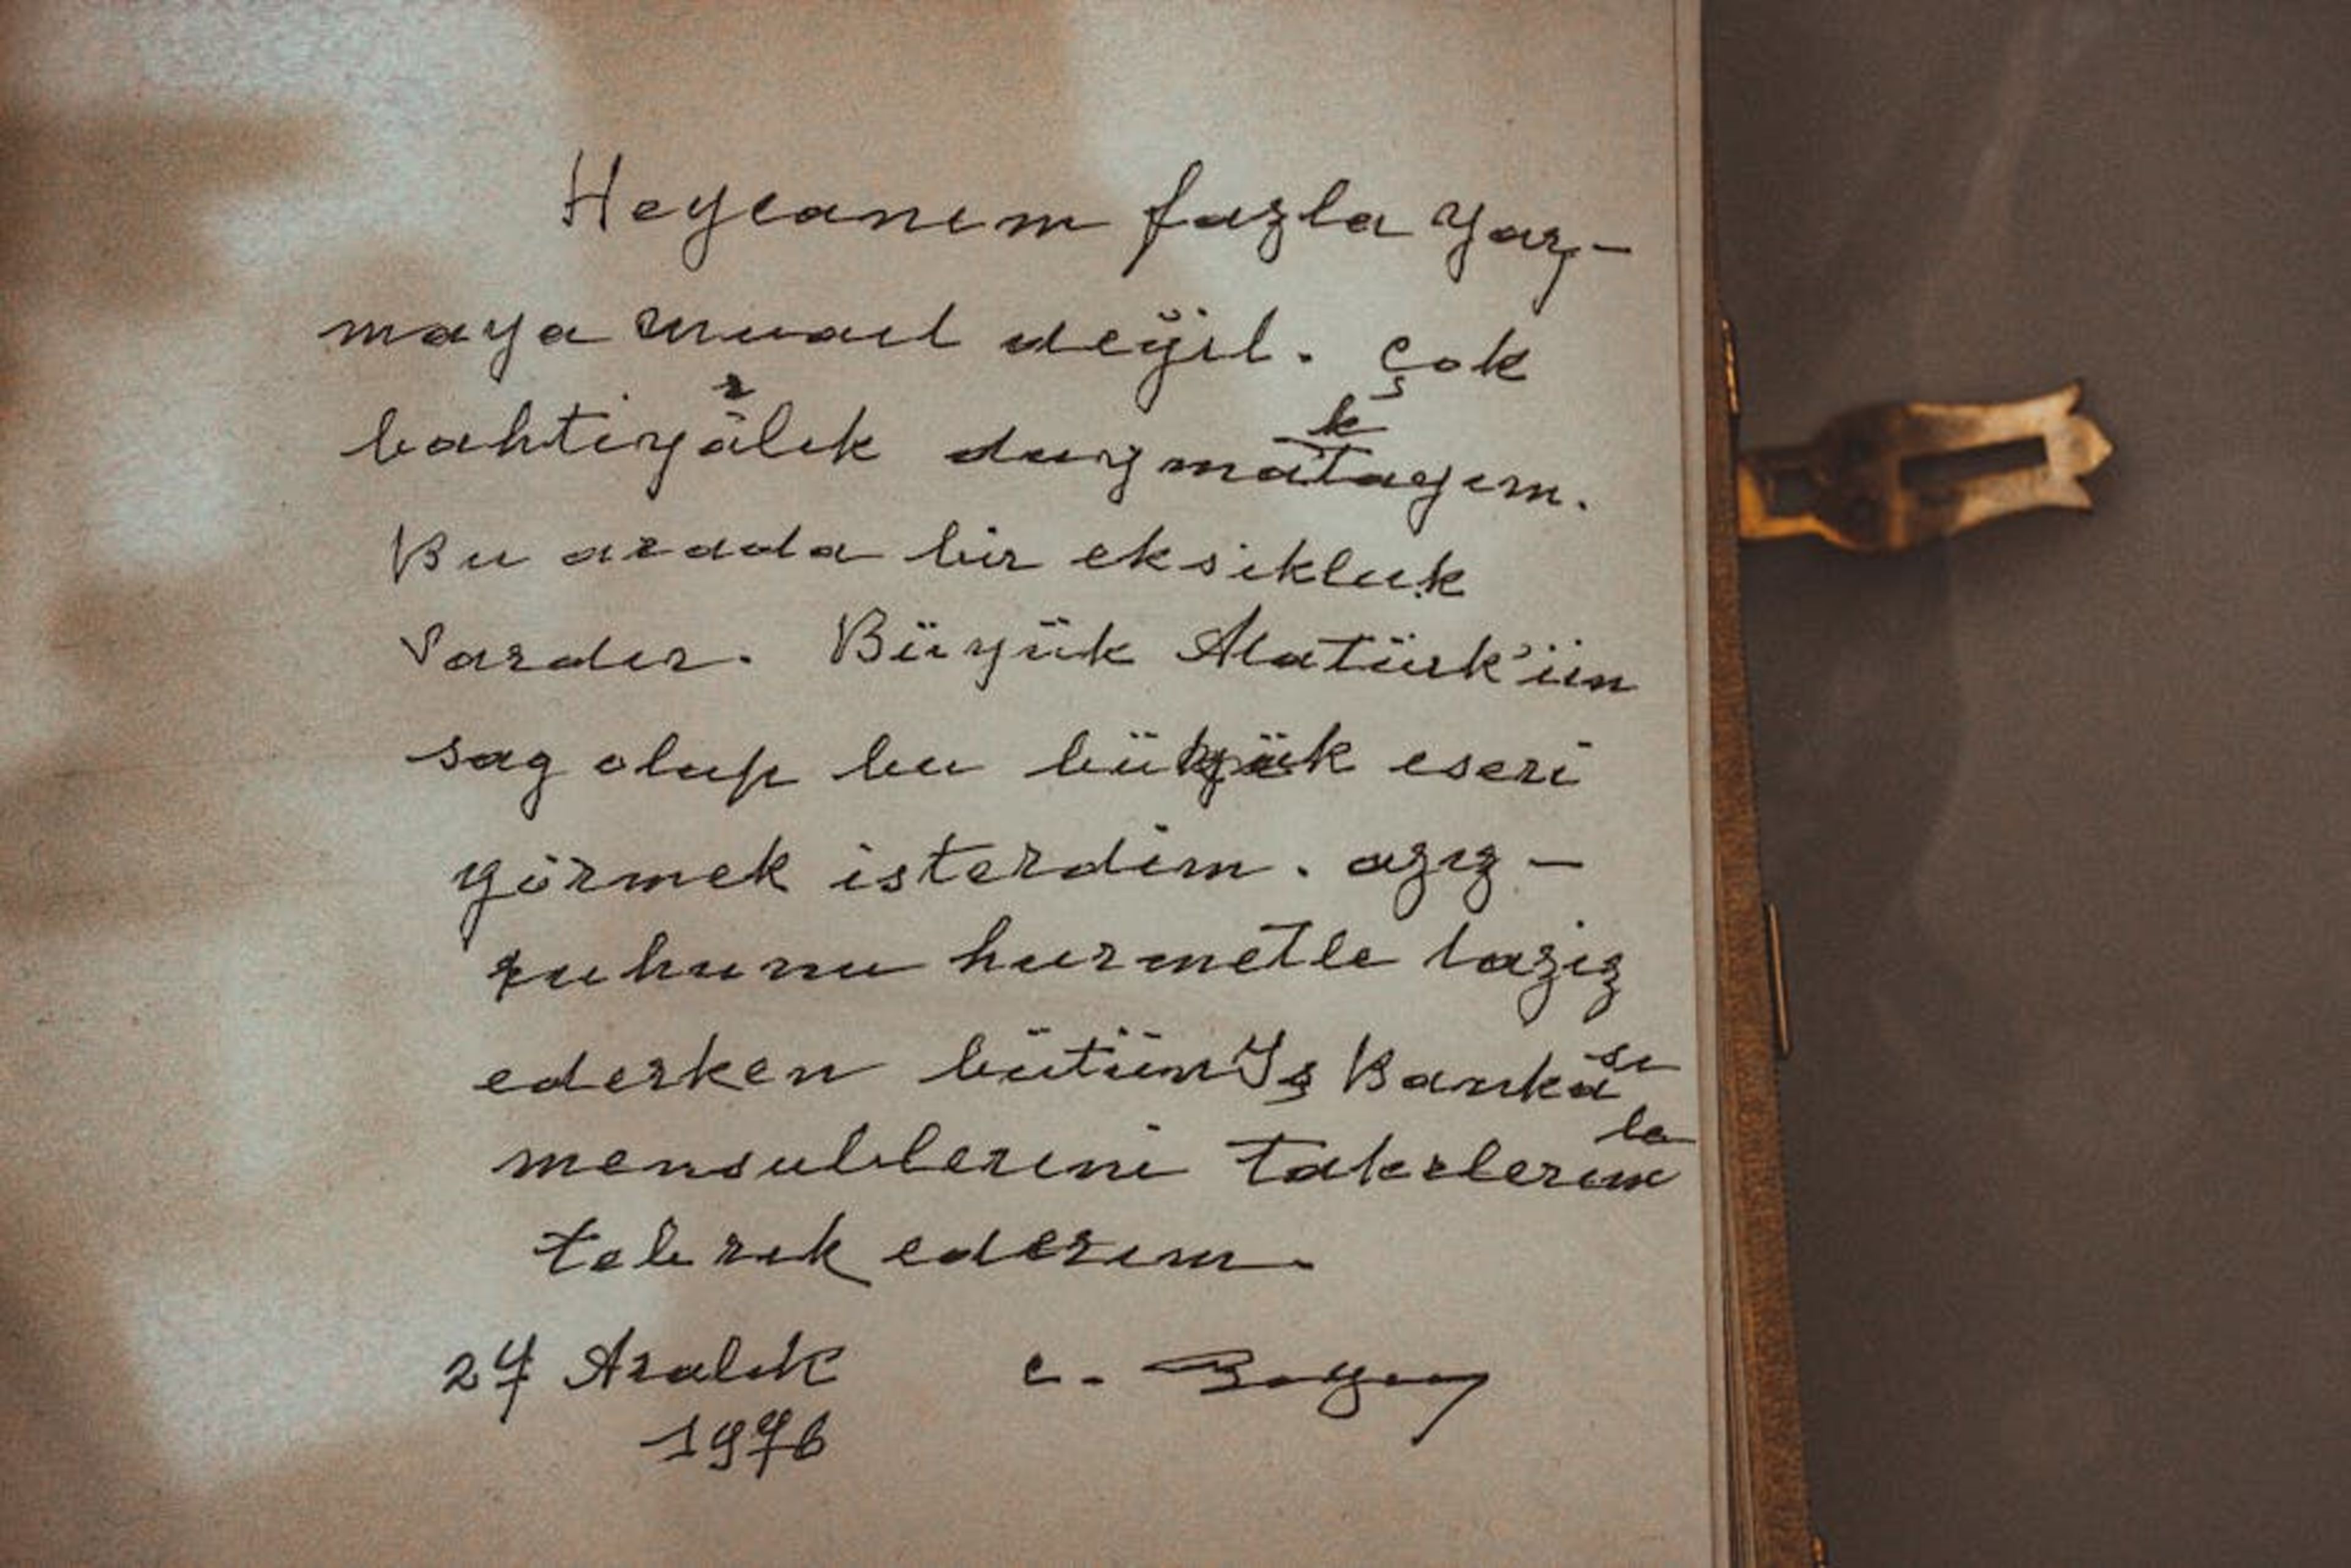 Heycanım fazla yaz-
maya muail değil. Çok
bahtiyârlık duymaktayım.
Bu arada bir eksikluk
vardır. Büyük Atatürk'ün
sag olup bu büyük eseri
görmek isterdim. aziz-
ruhunu hurmetle taziz
ederken bütün İş Bankası
mensublerini takdirlerimle
tebrik ederim.
24 Aralık C. Bayar
1976